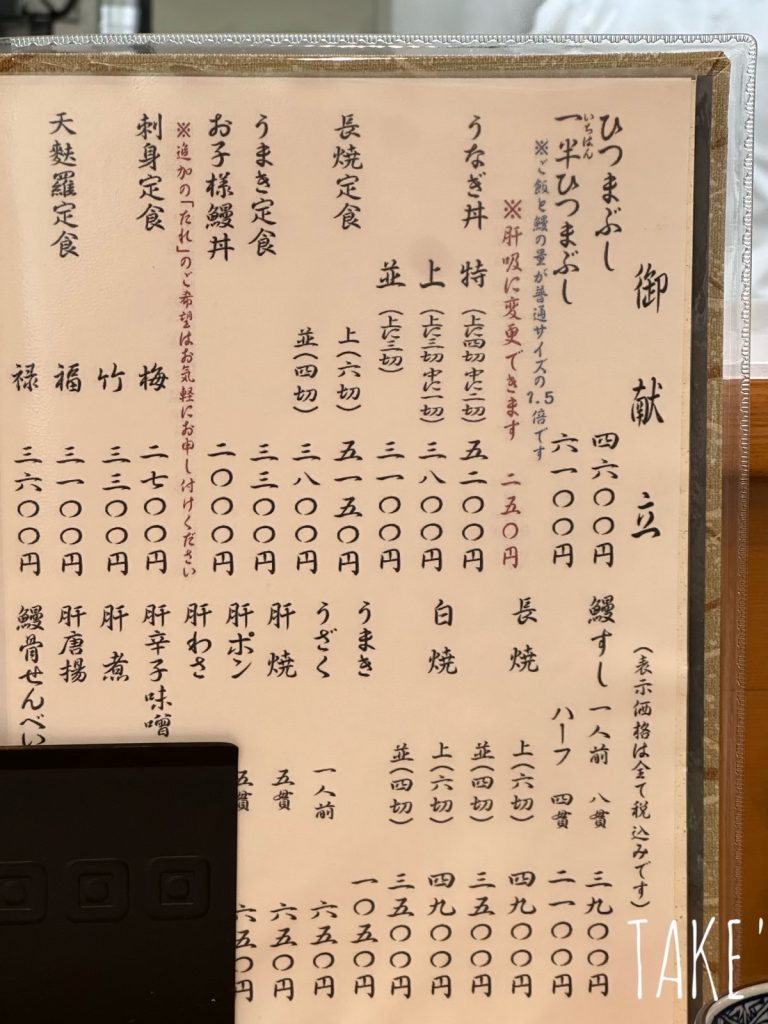 御献立
(表示価格は全て税込みです)
ひつまぶし 四六〇〇円
いちはん
一半ひつまぶし 六一〇〇円
※ご飯と鰻の量が普通サイズの1.5倍です
※肝吸に変更できます 二五〇円
うなぎ丼 特(上に四切中に二切) 五二〇〇円
上(上に三切中に一切) 三八〇〇円
並(上に三切) 三一〇〇円
長焼定食 上(六切) 五一五〇円
並(四切) 三八〇〇円
うまき定食 三三〇〇円
お子様鰻丼 二〇〇〇円
※追加の「たれ」のご希望はお気軽にお申し付けください
刺身定食 梅 二七〇〇円
竹 三三〇〇円
天麩羅定食 福 三一〇〇円
禄 三六〇〇円
鰻すし 一人前 八貫 三九〇〇円
ハーフ 四貫 二一〇〇円
長焼 上(六切) 四九〇〇円
並(四切) 三五〇〇円
白焼 上(六切) 四九〇〇円
並(四切) 三五〇〇円
うまき 一〇五〇円
うざく 一人前 六五〇円
肝焼 五貫 六五〇円
肝ポン 五貫 六五〇円
肝わさ
肝辛子味噌
肝煮
肝唐揚
鰻骨せんべい
TAKE'